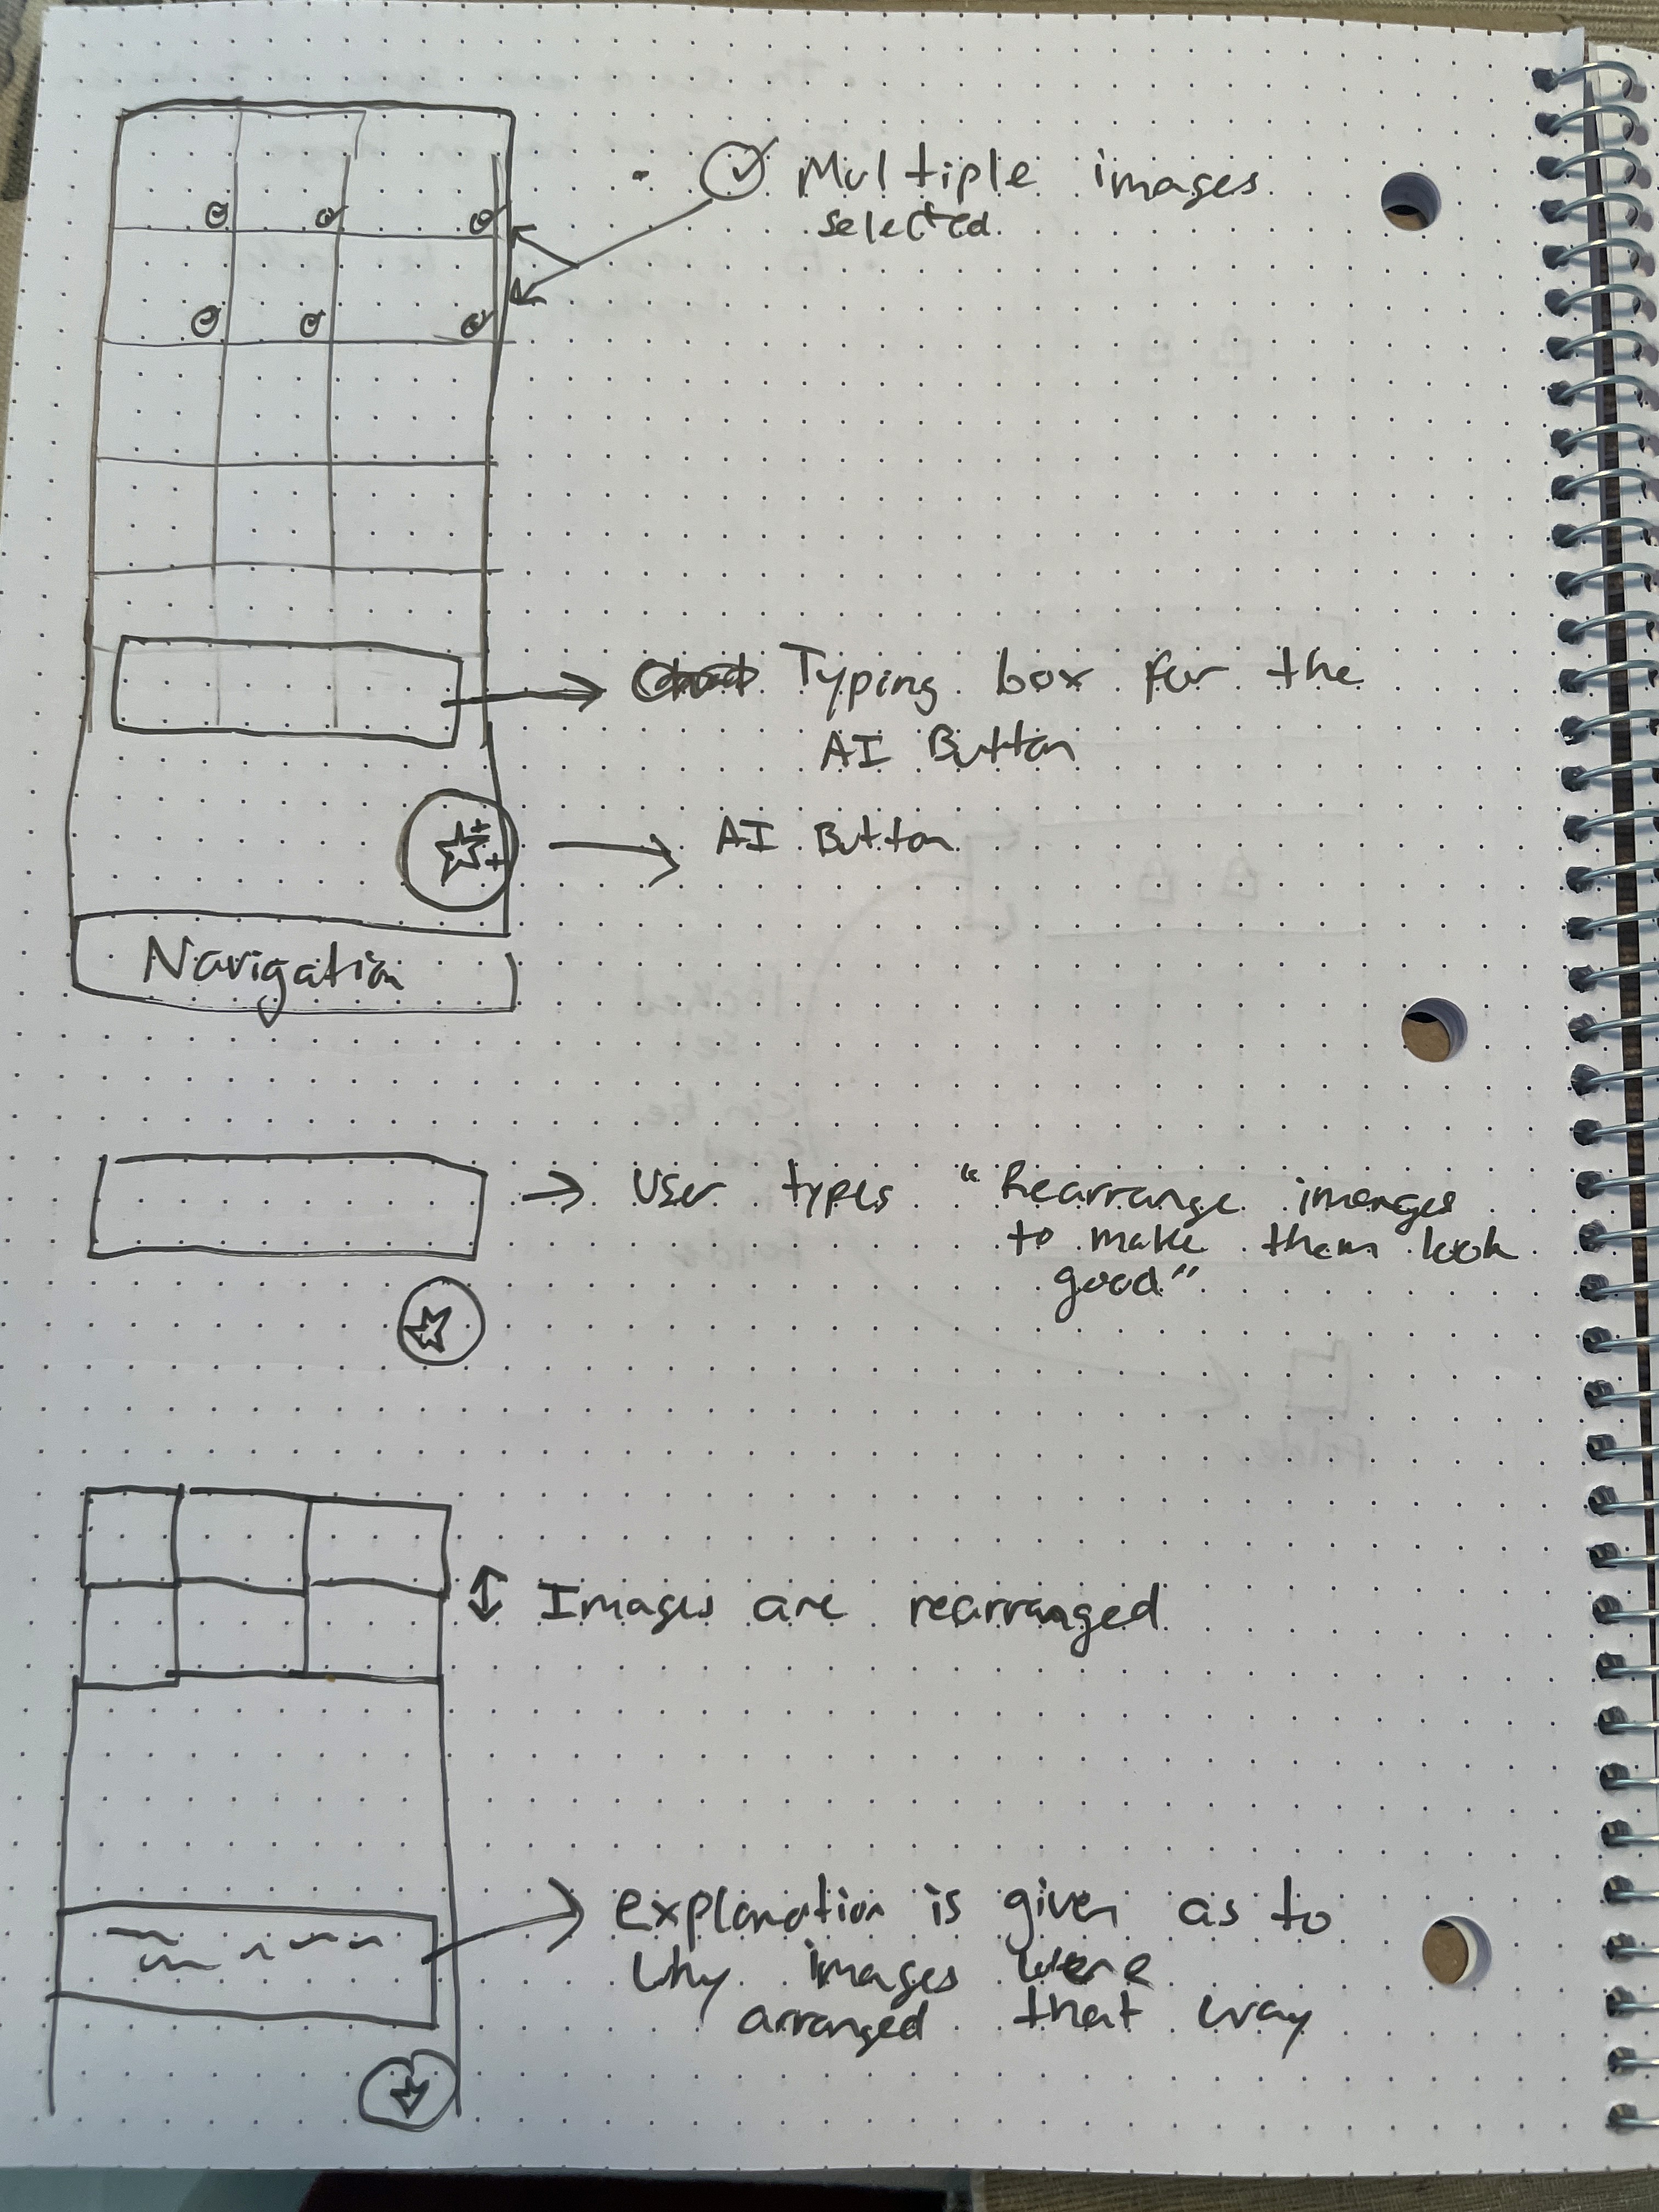 Multiple images
selected
Typing box for the
AI Button
AI Button
Navigation
User types "Rearrange images
to make them look
good"
Images are rearranged
explanation is given as to
why images were
arranged that way